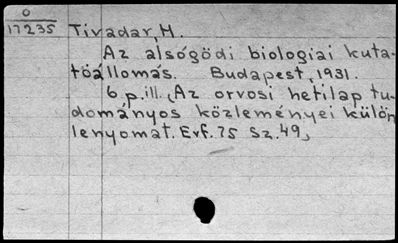 O
17235
Tivadar, M.
Az alsógödi biologiai kuta-
tóállomás. Budapest, 1931.
6 p. ill. (Az orvosi hetilap tu-
dományos közleményei külön
lenyomat. Evf. 75 Sz. 49)